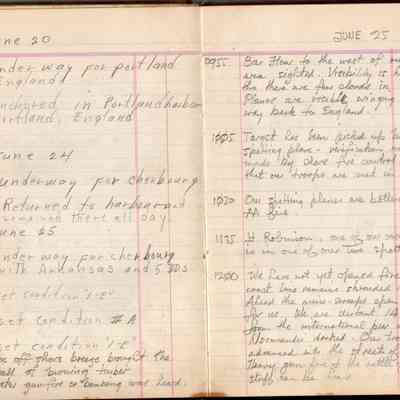 une 20
nderway for portland
England
nchored in Portland harbor
ortland, England
June 24
underway for cherbourg
Returned to harbor and
there all day
June 25
nderway for cherbourg
with Arkansas and 5 DDs
set condition "1 E"
set condition #A
set condition "1 E"
off shore breeze brought the
ll of burning timber
gunfire or bombing was heard.
JUNE 25
0955 Bar Fleur to the west of
area sighted. Visibility is
tho there are few clouds in
Planes are visible winging
way back to England.
1005 Target has been picked up
spotting plane - verification
made by shore fire control
that our troops are not in
1030 Our spotting planes are
AA fire.
1135 Lt Robinson, one of our
is in one of our two
1200 We have not yet opened fire
coast line remains shrouded
Allied the
for us. We are distant
from the international pier
Normandie docked. Our
advanced into the streets of
Heavy gun fire of the
stuff can be heard